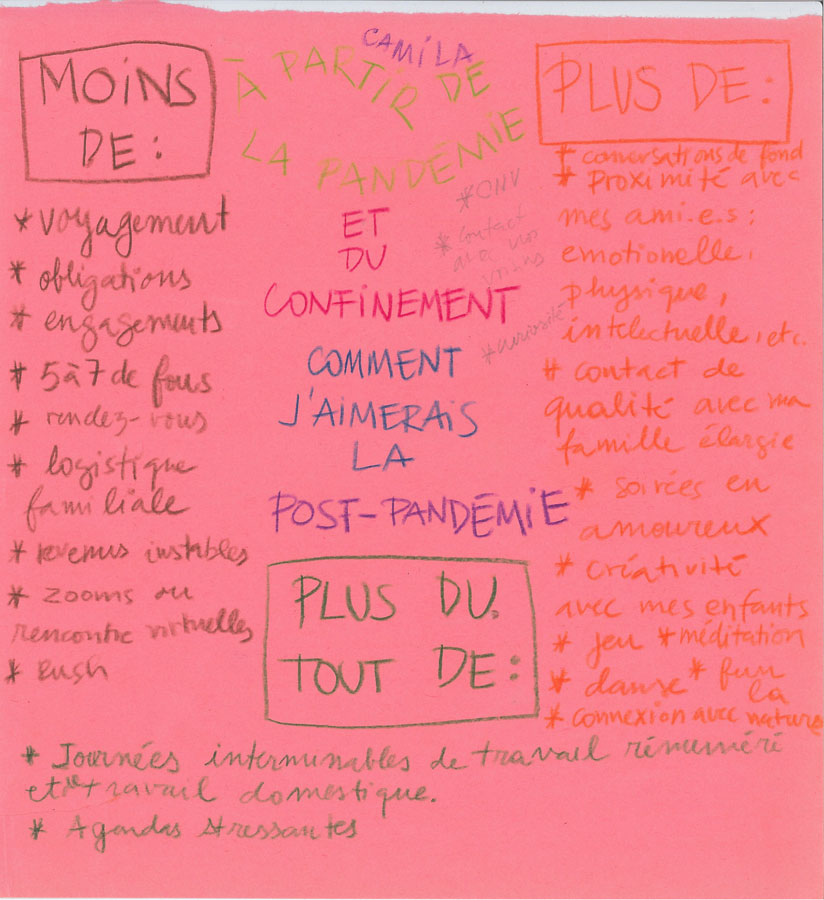 CAMILA
À PARTIR DE
LA PANDÉMIE
ET
DU
CONFINEMENT
COMMENT
J'AIMERAIS
LA
POST-PANDÉMIE
MOINS
DE :
* voyagement
* obligations
* engagements
* 5 à 7 de fous
* rendez-vous
* logistique
familiale
* revenus instables
* zooms ou
rencontre virtuelles
* Rush
PLUS DE :
* conversations de fond
* proximité avec
mes ami.e.s :
emotionelle,
physique,
intelectuelle, etc.
* contact de
qualité avec ma
famille élargie
* soirées en
amoureux
* créativité
avec mes enfants
* jeu * méditation
* danse * fun
* connexion avec la nature
* CNV
* contact
avec nos
voisins
* curiosité
PLUS DU
TOUT DE :
* Journées interminables de travail rémunéré
et de travail domestique.
* Agendas stressantes